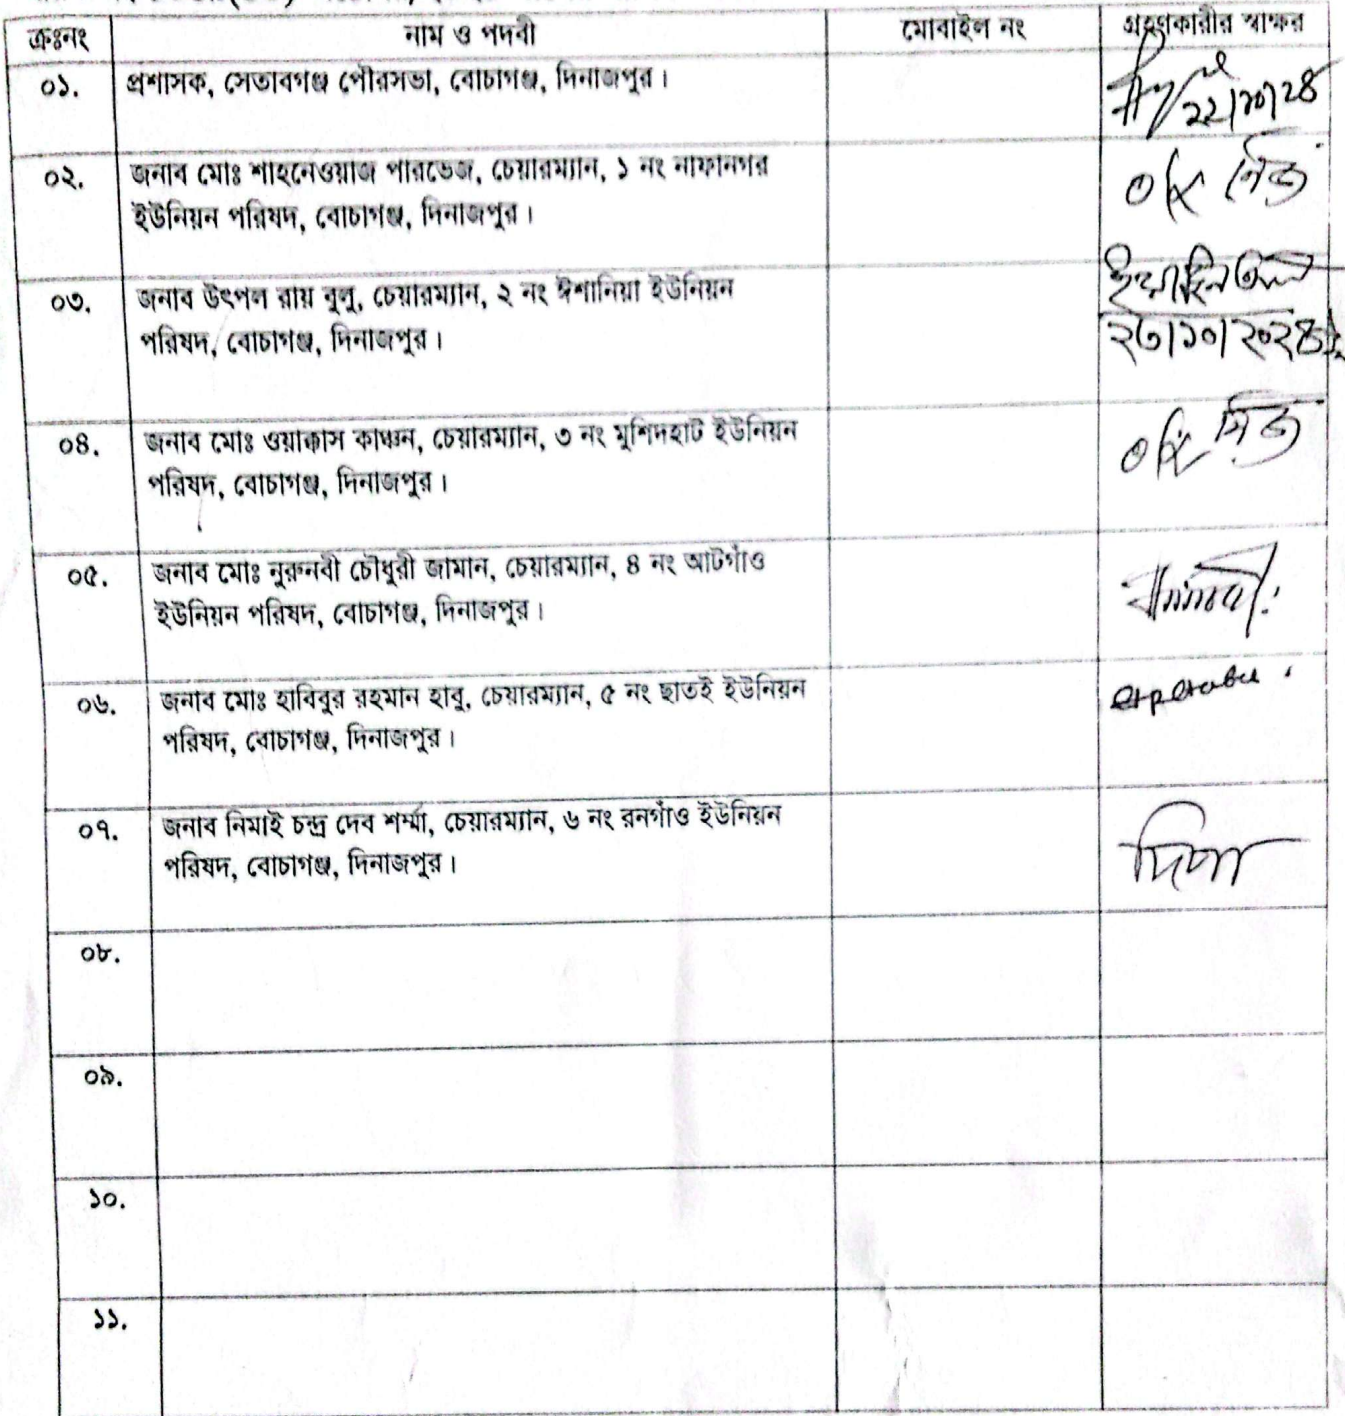 ক্রঃনং নাম ও পদবী মোবাইল নং গ্রহণকারীর স্বাক্ষর
০১. প্রশাসক, সেতাবগঞ্জ পৌরসভা, বোচাগঞ্জ, দিনাজপুর।
২২/১০/২৪
০২. জনাব মোঃ শাহনেওয়াজ পারভেজ, চেয়ারম্যান, ১ নং নাফানগর
ইউনিয়ন পরিষদ, বোচাগঞ্জ, দিনাজপুর।
০৩. জনাব উৎপল রায় বুলু, চেয়ারম্যান, ২ নং ঈশানিয়া ইউনিয়ন
পরিষদ, বোচাগঞ্জ, দিনাজপুর।
২৩/১০/২০২৪
০৪. জনাব মোঃ ওয়াক্কাস কাঞ্চন, চেয়ারম্যান, ৩ নং মুশিদহাট ইউনিয়ন
পরিষদ, বোচাগঞ্জ, দিনাজপুর।
০৫. জনাব মোঃ নুরুনবী চৌধুরী জামান, চেয়ারম্যান, ৪ নং আটগাঁও
ইউনিয়ন পরিষদ, বোচাগঞ্জ, দিনাজপুর।
০৬. জনাব মোঃ হাবিবুর রহমান হাবু, চেয়ারম্যান, ৫ নং ছাতই ইউনিয়ন
পরিষদ, বোচাগঞ্জ, দিনাজপুর।
০৭. জনাব নিমাই চন্দ্র দেব শর্ম্মা, চেয়ারম্যান, ৬ নং রনগাঁও ইউনিয়ন
পরিষদ, বোচাগঞ্জ, দিনাজপুর।
০৮.
০৯.
১০.
১১.